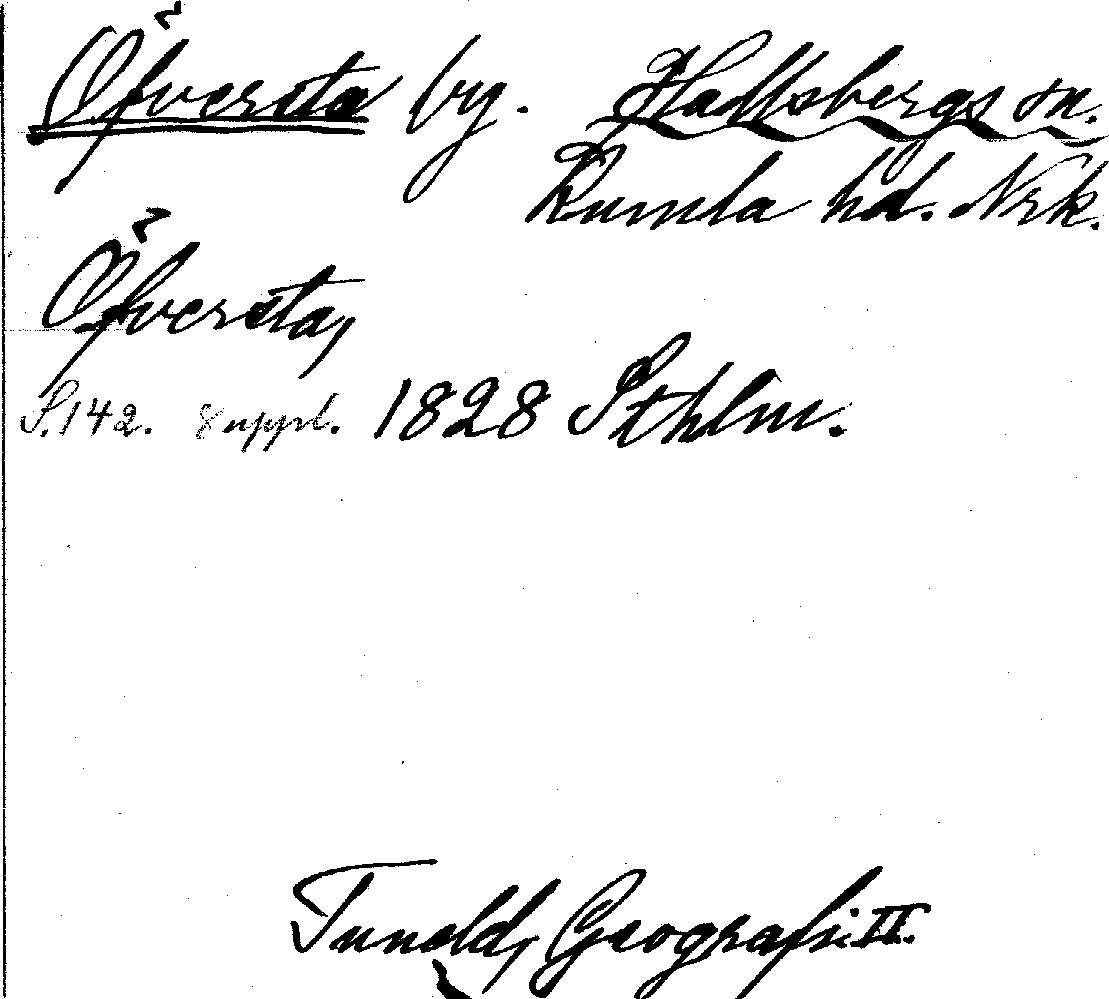 Öfversta by. Hallsbergs sn.
Kumla hd. Nrk.
Öfversta,
S. 142. 8 uppl. 1828 Sthlm.
Tuneld, Geografi. II.